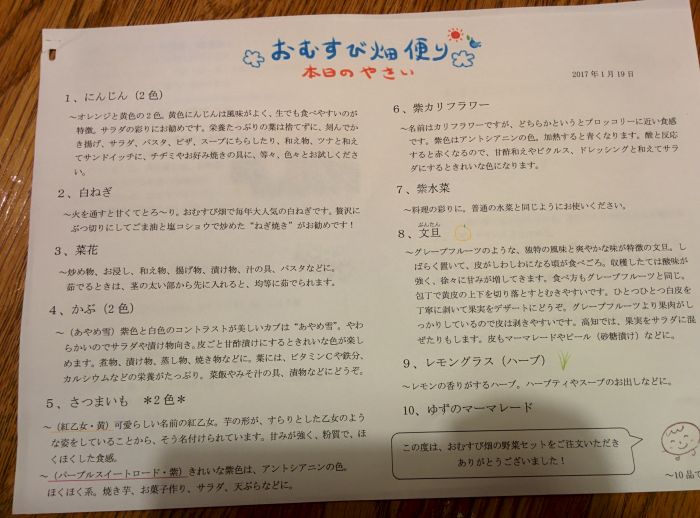 おむすび畑便り
本日のやさい
2017年1月19日
1、にんじん(2色)
~オレンジと黄色の2色。黄色にんじんは風味がよく、生でも食べやすいのが
特徴。サラダの彩りにお勧めです。栄養たっぷりの葉は捨てずに、刻んでか
き揚げ、サラダ、パスタ、ピザ、スープにちらしたり、和え物、ツナと和え
てサンドイッチに、チヂミやお好み焼きの具に、等々、色々とお試しくださ
い。
2、白ねぎ
~火を通すと甘くてとろ~り。おむすび畑で毎年大人気の白ねぎです。贅沢に
ぶつ切りにしてごま油と塩コショウで炒めた“ねぎ焼き”がお勧めです!
3、菜花
~炒め物、お浸し、和え物、揚げ物、漬け物、汁の具、パスタなどに。
茹でるときは、茎の太い部から先に入れると、均等に茹でられます。
4、かぶ(2色)
~(あやめ雪)紫色と白色のコントラストが美しいカブは“あやめ雪”。やわ
らかいのでサラダや漬け物向き。皮ごと甘酢漬けにするときれいな色が楽し
めます。煮物、漬け物、蒸し物、焼き物などに。葉には、ビタミンCや鉄分、
カルシウムなどの栄養がたっぷり。菜飯やみそ汁の具、漬物などにどうぞ。
5、さつまいも ＊2色＊
~(紅乙女・黄)可愛らしい名前の紅乙女。芋の形が、すらりとした乙女のよう
な姿をしていることから、そう名付けられています。甘みが強く、粉質で、ほ
くほくした食感。
~(パープルスイートロード・紫)きれいな紫色は、アントシアニンの色。
ほくほく系。焼き芋、お菓子作り、サラダ、天ぷらなどに。
6、紫カリフラワー
~名前はカリフラワーですが、どちらかというとブロッコリーに近い食感
です。紫色はアントシアニンの色。加熱すると青くなります。酸と反応
すると赤くなるので、甘酢和えやピクルス、ドレッシングと和えてサラ
ダにするときれいな色になります。
7、紫水菜
~料理の彩りに。普通の水菜と同じようにお使いください。
8、文旦
ぶんたん
~グレープフルーツのような、独特の風味と爽やかな味が特徴の文旦。し
ばらく置いて、皮がしわしわになる頃が食べごろ。収穫したては酸味が
強く、徐々に甘みが増してきます。食べ方もグレープフルーツと同じ。
包丁で黄皮の上下を切り落とすとむきやすいです。ひとつひとつ白皮を
丁寧に剥いて果実をデザートにどうぞ。グレープフルーツより果肉がし
っかりしているので皮は剥きやすいです。高知では、果実をサラダに混
ぜたりもします。皮もマーマレードやピール(砂糖漬け)などに。
9、レモングラス(ハーブ)
~レモンの香りがするハーブ。ハーブティやスープのお出しなどに。
10、ゆずのマーマレード
この度は、おむすび畑の野菜セットをご注文いただき
ありがとうございました!
~10品で